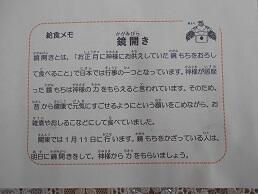 給食メモ
かがみびら
鏡開き
鏡開きとは、「お正月に神様にお供えしていた鏡もちをおろし
て食べること」で日本では行事の一つとなっています。神様が宿
った鏡もちは神様の力をもらえると言われています。そのため、
昔から健康で元気にすごせるようにという願いをこめながら、お
雑煮やおしるこなどにして食べていました。
関東では１月１１日に行います。鏡もちをかざっている人は、
明日に鏡開きをして、神様から力をもらいましょう。